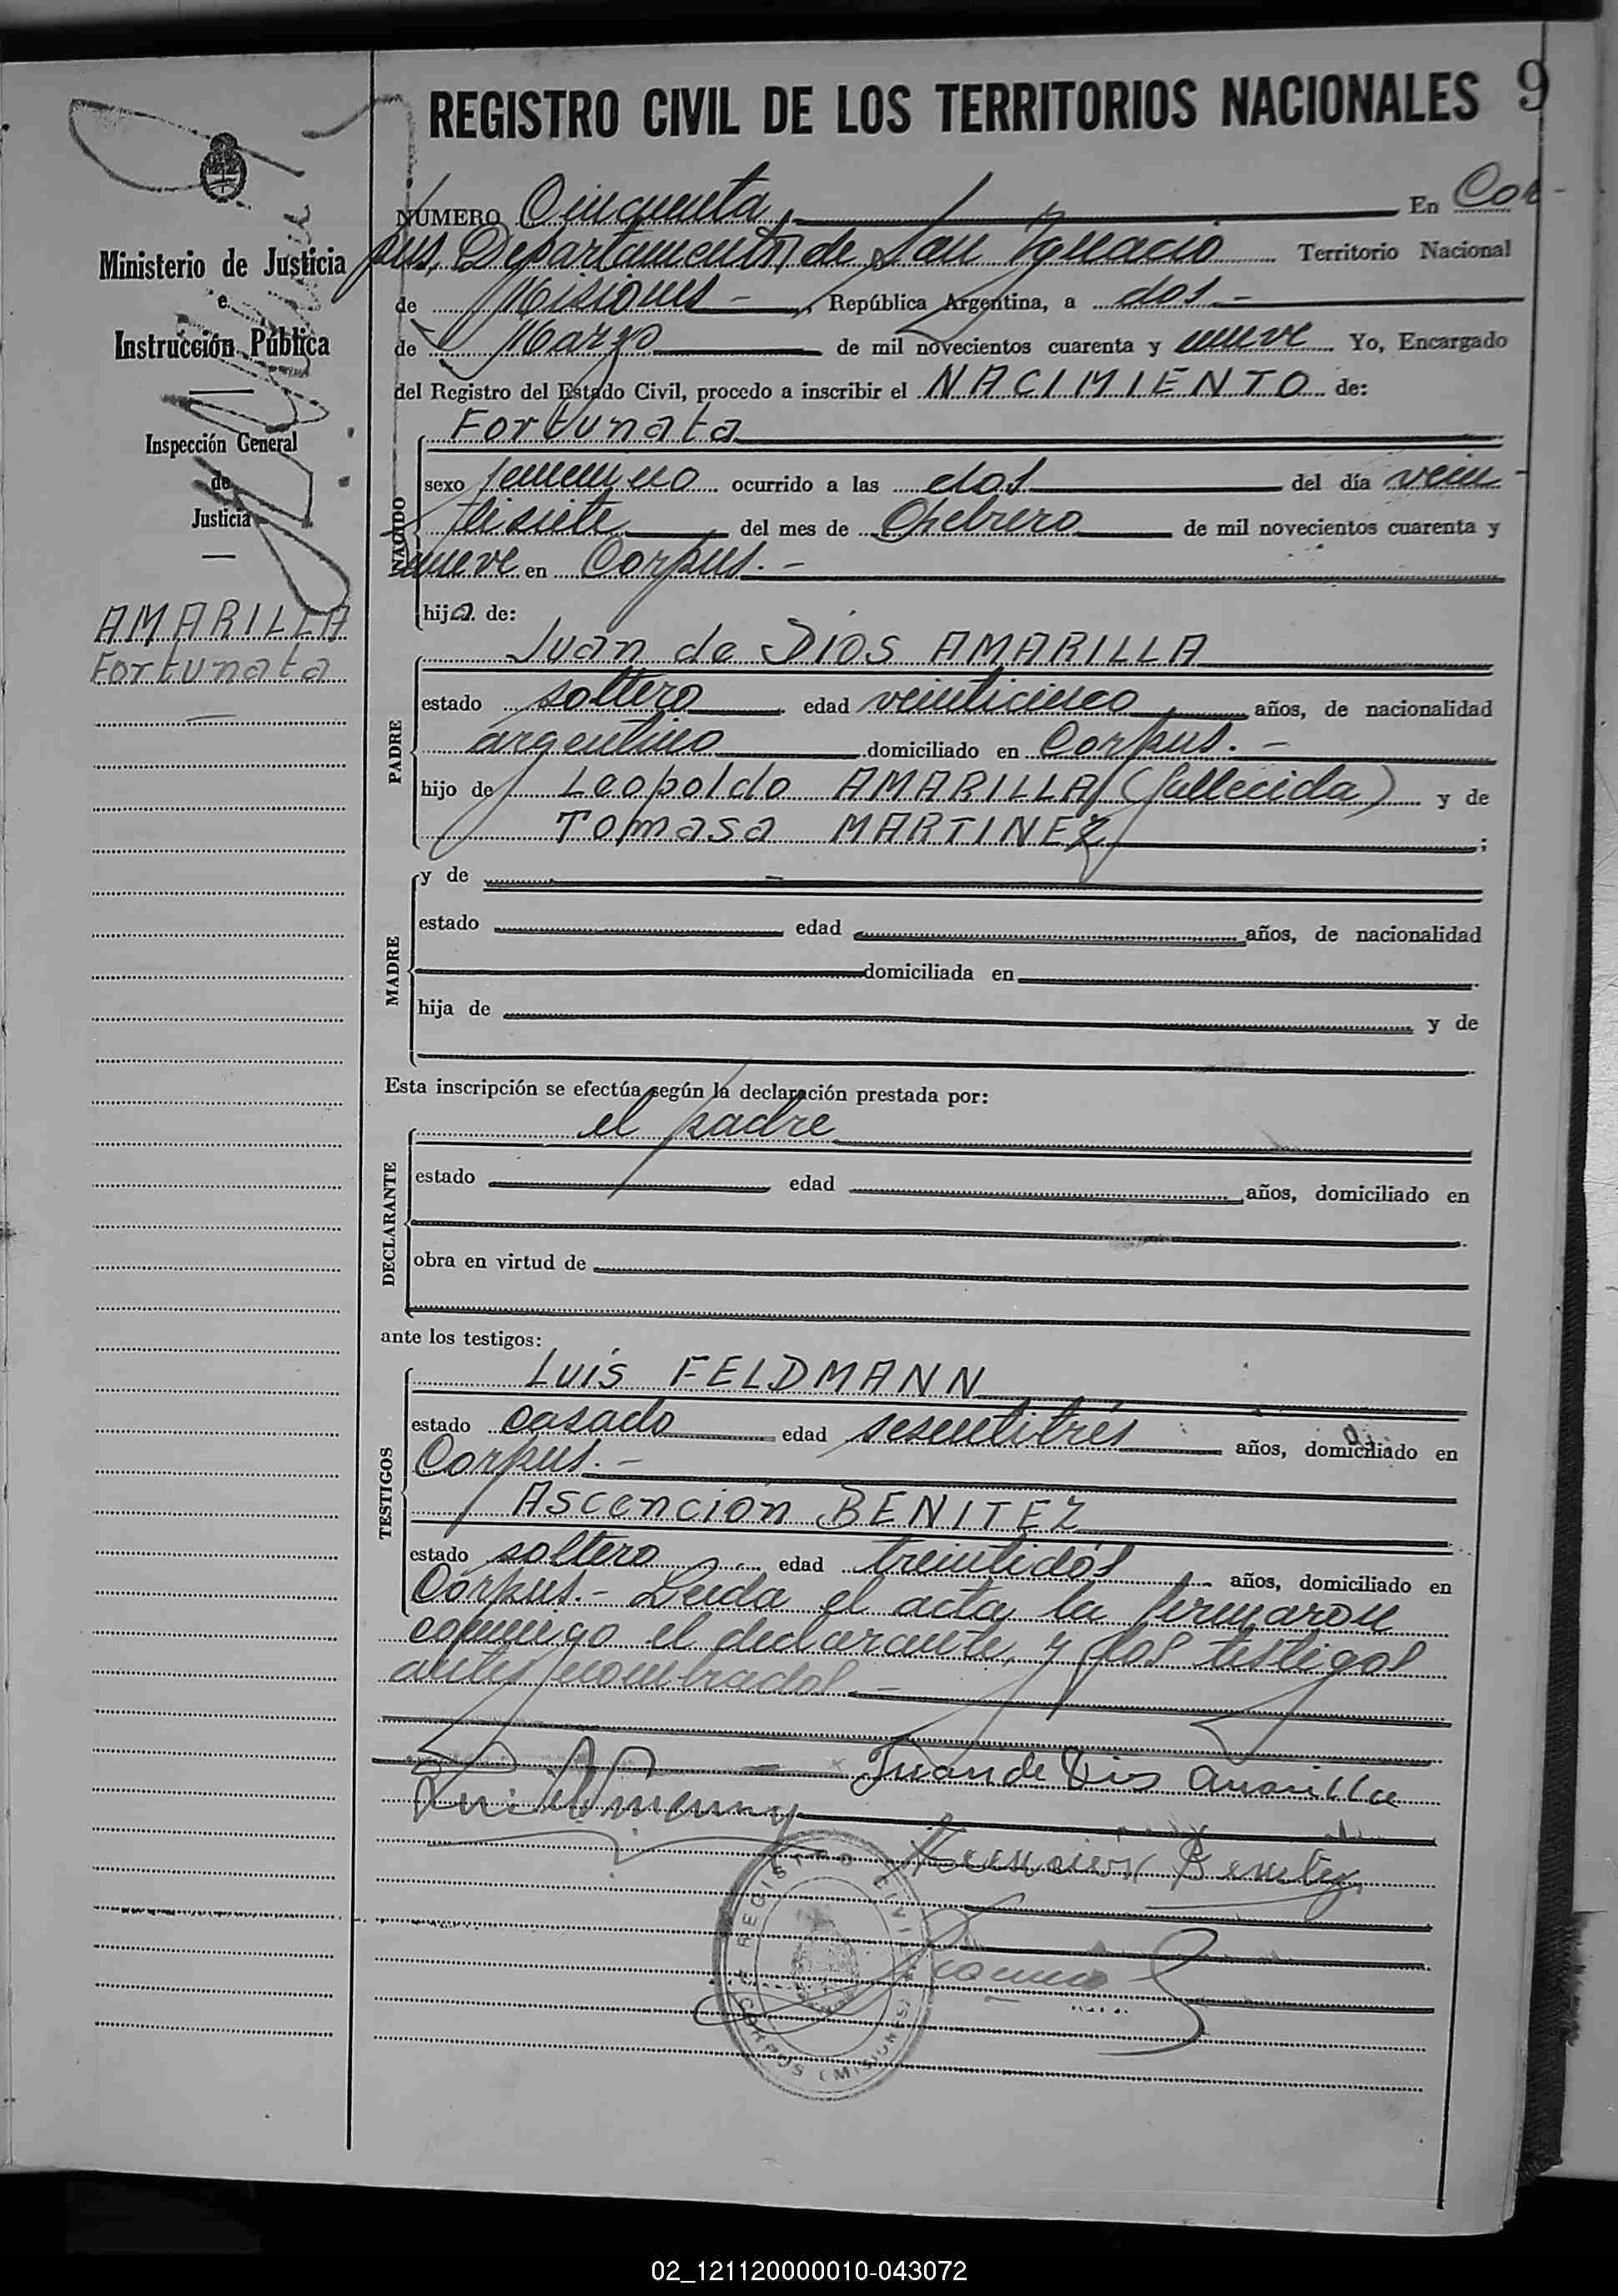 REGISTRO CIVIL DE LOS TERRITORIOS NACIONALES 9
NUMERO Cinquenta, En Cor-
pus, Departamento de San Ignacio Territorio Nacional
de Misiones -, República Argentina, a dos -
de Marzo de mil novecientos cuarenta y nueve Yo, Encargado
del Registro del Estado Civil, procedo a inscribir el NACIMIENTO de:
Ministerio de Justicia
e
Instrucción Pública
Inspección General
de
Justicia
AMARILLA
Fortunata
NACIDO
Fortunata
sexo femenino ocurrido a las dos del día vein-
tisiete del mes de Febrero de mil novecientos cuarenta y
nueve en Corpus. -
hija de:
PADRE
Juan de Dios AMARILLA
estado soltero edad veinticinco años, de nacionalidad
argentino domiciliado en Corpus. -
hijo de Leopoldo AMARILLA (fallecida) y de
Tomasa MARTINEZ ;
MADRE
y de
estado edad años, de nacionalidad
domiciliada en
hija de y de
Esta inscripción se efectúa según la declaración prestada por:
DECLARANTE
el padre
estado edad años, domiciliado en
obra en virtud de
ante los testigos:
TESTIGOS
Luis FELDMANN
estado casado edad sesentitrés años, domiciliado en
Corpus. -
Ascención BENITEZ
estado soltero edad treintidós años, domiciliado en
Corpus. - Leida el acta la firmaron
conmigo el declarante, y los testigos
antes nombrados. -
Juan de Dios Amarilla
Ascención Benitez
REGISTRO CIVIL
CORPUS (MISIONES)
02_121120000010-043072